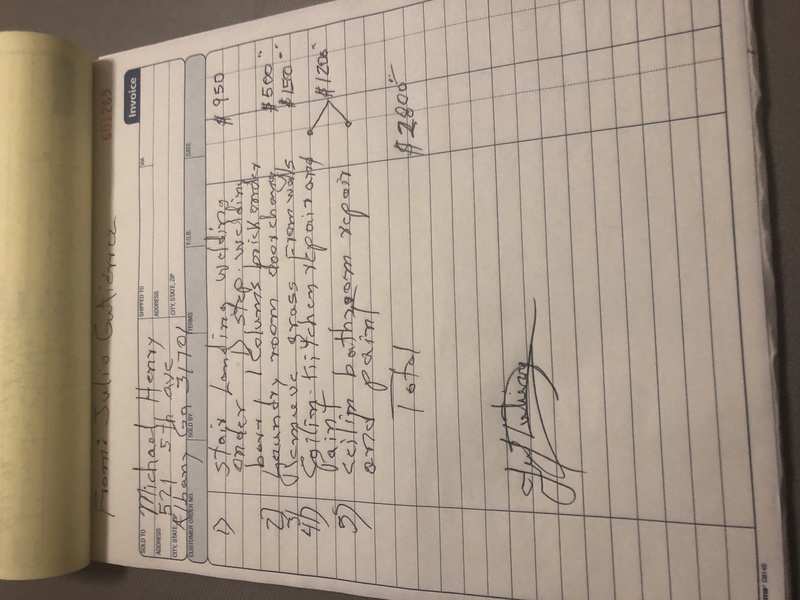 From: Julio Gutierrez
Invoice
SOLD TO Michael Henry SHIPPED TO
ADDRESS 521 5th ave ADDRESS
CITY, STATE, ZIP Albany Ga 31701 CITY, STATE, ZIP
CUSTOMER ORDER NO. SOLD BY TERMS F.O.B. DATE
1) Stair Landing welding $950
onder 1) step. welding
1 Columns brick onder
2) room door change $500
3) Remove grass From walls $150
4) Kitchen repair and $1200
Paint
5) Ceilim bathroom repair
and paint
Total $2800